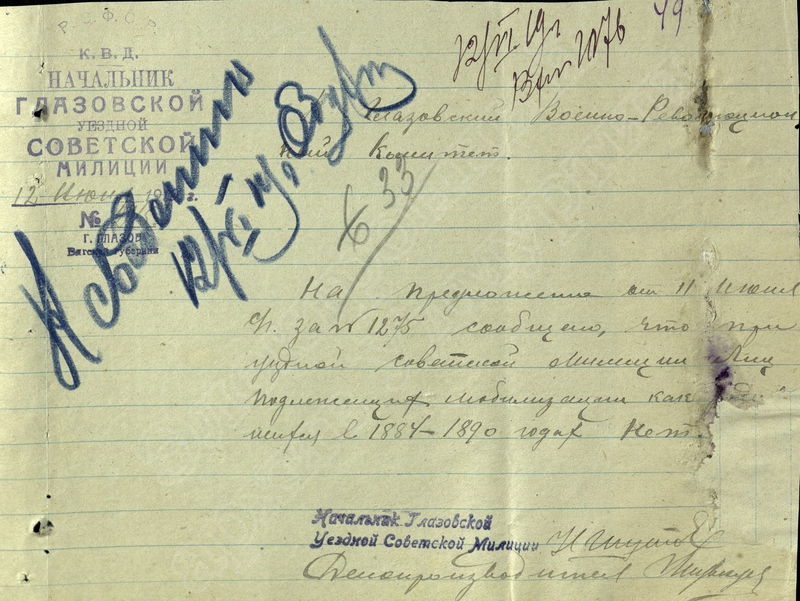 Р.С.Ф.С.Р.
К.В.Д.
НАЧАЛЬНИК
ГЛАЗОВСКОЙ
УЕЗДНОЙ
СОВЕТСКОЙ
МИЛИЦИИ
12 Июня 19 г.
№
Г. ГЛАЗОВ
Вятской губернии
12/VI 19г
Вх № 1076
49
К сведению
12/VI 19г.
633
Глазовский Военно-Революцион
ный Комитет.
На предложение от 11 Июня
с/г. за № 1275 сообщаю, что при
уездной советской милиции лиц
подлежащих мобилизации как
в 1884–1890 годах Нет.
Начальник Глазовской
Уездной Советской Милиции
Делопроизводитель